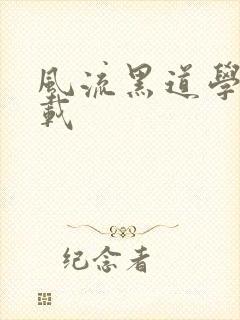 風流黑道學
載
纪念者